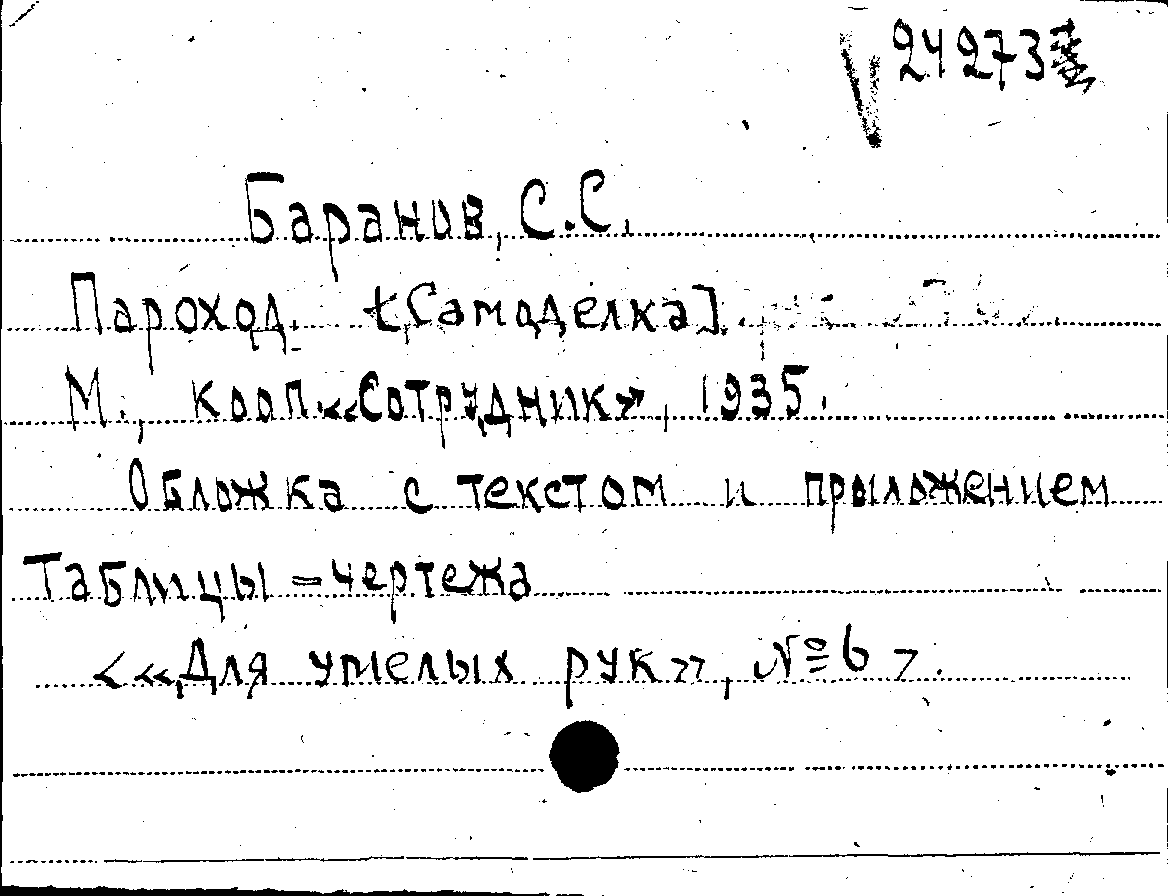 24273
Баранов, С.С.
Пароход. [Самоделка].
М., кооп. «Сотрудник», 1935.
Обложка с текстом и приложением
Таблицы = чертежа
< «Для умелых рук», № 6 >.